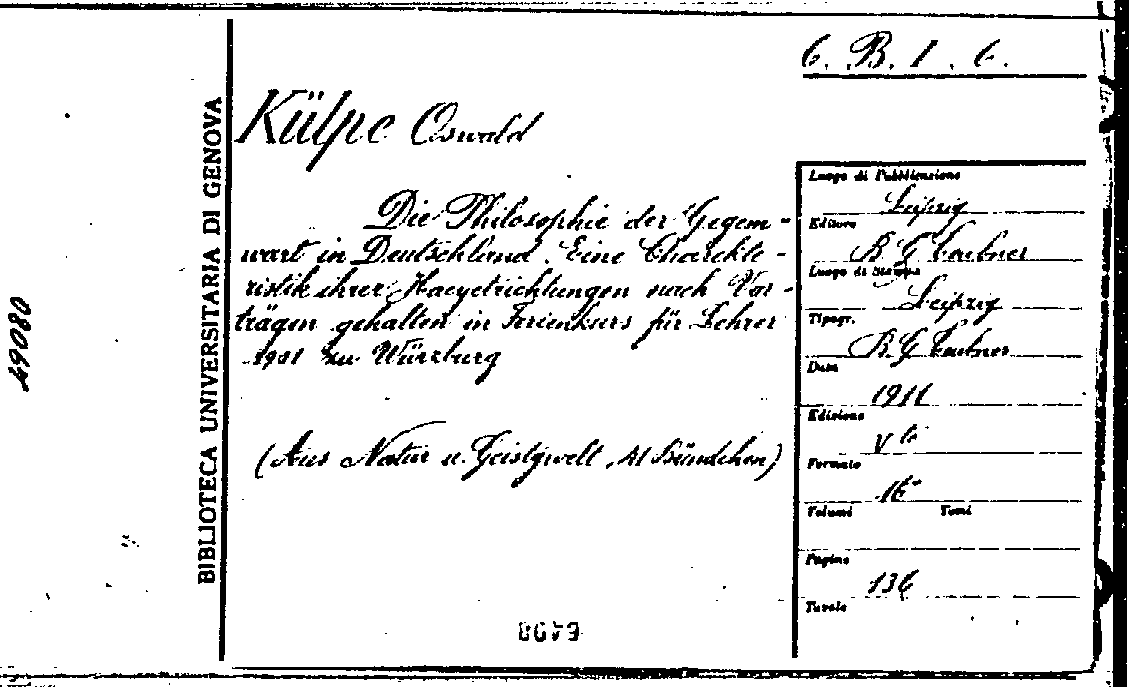 6. B. I. 6.
Külpe Oswald
Die Philosophie der Gegen-
wart in Deutschland. Eine Charakte-
ristik ihrer Haeyetrichtungen nach Vor-
trägen gehalten in Ferienkurs für Lehrer
1901 zu Würzburg
(Aus Natur u. Geistgwelt, 41 Bändchen)
BIBLIOTECA UNIVERSITARIA DI GENOVA
49080
Luogo di Pubblicazione
Leipzig
Editore
B G Teubner
Luogo di Stampa
Leipzig
Tipogr.
B. G Teubner
Data
1911
Edizione
Vte
Formato
16°
Volumi Tomi
Pagine
136
Tavole